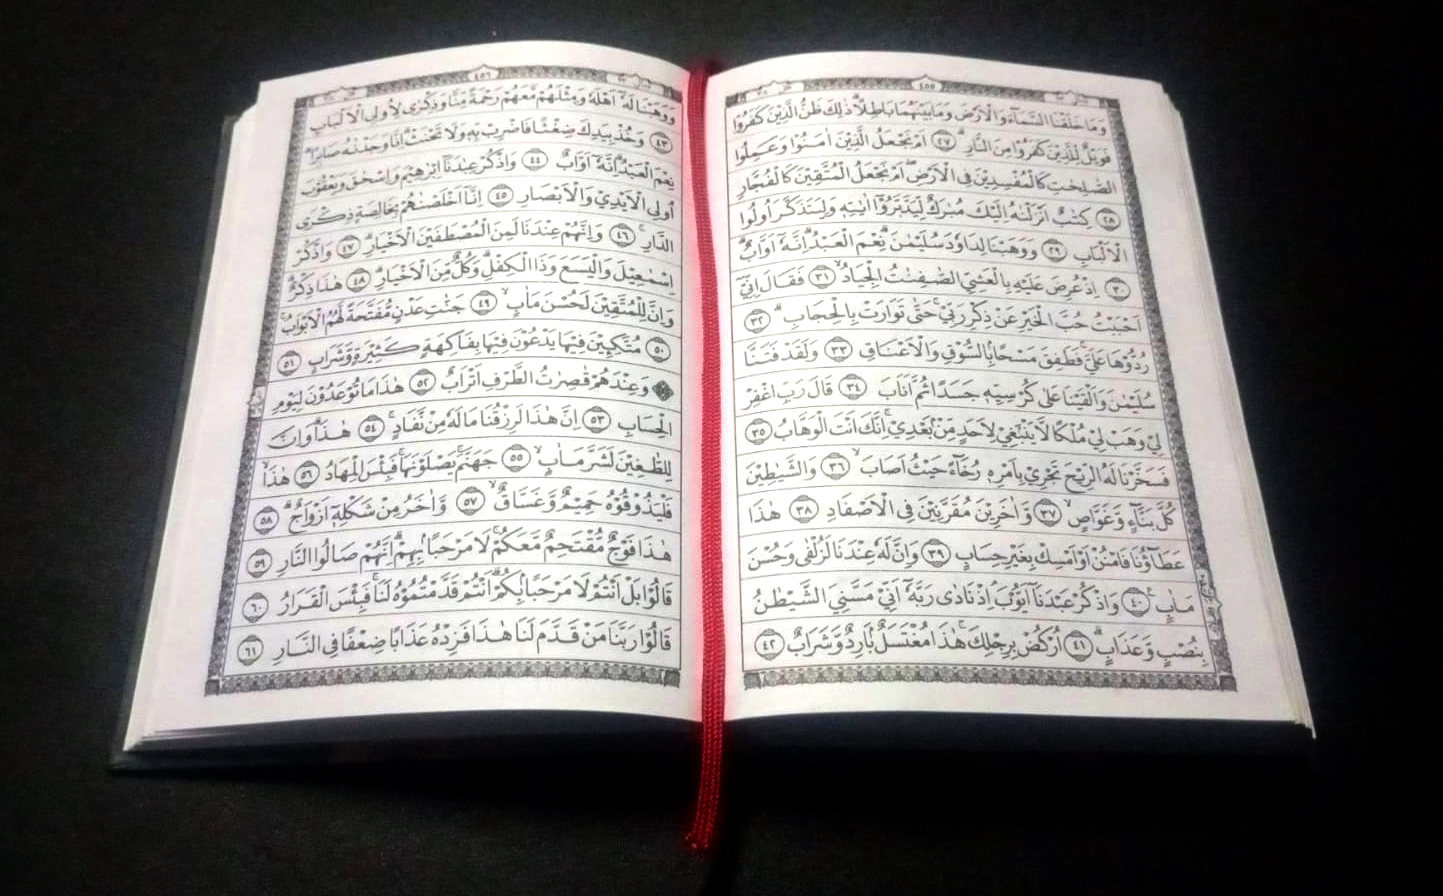 ٤٥٥
وَمَا خَلَقْنَا السَّمَآءَ وَالْاَرْضَ وَمَا بَيْنَهُمَا بَاطِلًا ۗذٰلِكَ ظَنُّ الَّذِيْنَ كَفَرُوْا
فَوَيْلٌ لِّلَّذِيْنَ كَفَرُوْا مِنَ النَّارِۗ ٢٧ اَمْ نَجْعَلُ الَّذِيْنَ اٰمَنُوْا وَعَمِلُوا
الصّٰلِحٰتِ كَالْمُفْسِدِيْنَ فِى الْاَرْضِۖ اَمْ نَجْعَلُ الْمُتَّقِيْنَ كَالْفُجَّارِ
٢٨ كِتٰبٌ اَنْزَلْنٰهُ اِلَيْكَ مُبٰرَكٌ لِّيَدَّبَّرُوْٓا اٰيٰتِهٖ وَلِيَتَذَكَّرَ اُولُوا
الْاَلْبَابِ ٢٩ وَوَهَبْنَا لِدَاوٗدَ سُلَيْمٰنَۗ نِعْمَ الْعَبْدُۗ اِنَّهٗٓ اَوَّابٌۗ
٣٠ اِذْ عُرِضَ عَلَيْهِ بِالْعَشِيِّ الصّٰفِنٰتُ الْجِيَادُۙ ٣١ فَقَالَ اِنِّيْٓ
اَحْبَبْتُ حُبَّ الْخَيْرِ عَنْ ذِكْرِ رَبِّيْۚ حَتّٰى تَوَارَتْ بِالْحِجَابِۗ ٣٢
رُدُّوْهَا عَلَيَّۚ فَطَفِقَ مَسْحًاۢ بِالسُّوْقِ وَالْاَعْنَاقِ ٣٣ وَلَقَدْ فَتَنَّا
سُلَيْمٰنَ وَاَلْقَيْنَا عَلٰى كُرْسِيِّهٖ جَسَدًا ثُمَّ اَنَابَ ٣٤ قَالَ رَبِّ اغْفِرْ
لِيْ وَهَبْ لِيْ مُلْكًا لَّا يَنْۢبَغِيْ لِاَحَدٍ مِّنْۢ بَعْدِيْۚ اِنَّكَ اَنْتَ الْوَهَّابُ ٣٥
فَسَخَّرْنَا لَهُ الرِّيْحَ تَجْرِيْ بِاَمْرِهٖ رُخَاۤءً حَيْثُ اَصَابَۙ ٣٦ وَالشَّيٰطِيْنَ
كُلَّ بَنَّاۤءٍ وَّغَوَّاصٍۙ ٣٧ وَّاٰخَرِيْنَ مُقَرَّنِيْنَ فِى الْاَصْفَادِ ٣٨ هٰذَا
عَطَاۤؤُنَا فَامْنُنْ اَوْ اَمْسِكْ بِغَيْرِ حِسَابٍ ٣٩ وَاِنَّ لَهٗ عِنْدَنَا لَزُلْفٰى وَحُسْنَ
مَاٰبٍۚ ٤٠ وَاذْكُرْ عَبْدَنَآ اَيُّوْبَۘ اِذْ نَادٰى رَبَّهٗٓ اَنِّيْ مَسَّنِيَ الشَّيْطٰنُ
بِنُصْبٍ وَّعَذَابٍۗ ٤١ اُرْكُضْ بِرِجْلِكَۚ هٰذَا مُغْتَسَلٌۢ بَارِدٌ وَّشَرَابٌ ٤٢
٤٥٦
وَوَهَبْنَا لَهٗٓ اَهْلَهٗ وَمِثْلَهُمْ مَّعَهُمْ رَحْمَةً مِّنَّا وَذِكْرٰى لِاُولِى الْاَلْبَابِ
٤٣ وَخُذْ بِيَدِكَ ضِغْثًا فَاضْرِبْ بِّهٖ وَلَا تَحْنَثْۗ اِنَّا وَجَدْنٰهُ صَابِرًاۗ
نِعْمَ الْعَبْدُۗ اِنَّهٗٓ اَوَّابٌ ٤٤ وَاذْكُرْ عِبٰدَنَآ اِبْرٰهِيْمَ وَاِسْحٰقَ وَيَعْقُوْبَ
اُولِى الْاَيْدِيْ وَالْاَبْصَارِ ٤٥ اِنَّآ اَخْلَصْنٰهُمْ بِخَالِصَةٍ ذِكْرَى
الدَّارِۚ ٤٦ وَاِنَّهُمْ عِنْدَنَا لَمِنَ الْمُصْطَفَيْنَ الْاَخْيَارِۗ ٤٧ وَاذْكُرْ
اِسْمٰعِيْلَ وَالْيَسَعَ وَذَا الْكِفْلِۗ وَكُلٌّ مِّنَ الْاَخْيَارِۗ ٤٨ هٰذَا ذِكْرٌۗ
وَاِنَّ لِلْمُتَّقِيْنَ لَحُسْنَ مَاٰبٍۙ ٤٩ جَنّٰتِ عَدْنٍ مُّفَتَّحَةً لَّهُمُ الْاَبْوَابُۚ
٥٠ مُتَّكِـِٕيْنَ فِيْهَا يَدْعُوْنَ فِيْهَا بِفَاكِهَةٍ كَثِيْرَةٍ وَّشَرَابٍ ٥١
وَعِنْدَهُمْ قٰصِرٰتُ الطَّرْفِ اَتْرَابٌ ٥٢ هٰذَا مَا تُوْعَدُوْنَ لِيَوْمِ
الْحِسَابِ ٥٣ اِنَّ هٰذَا لَرِزْقُنَا مَا لَهٗ مِنْ نَّفَادٍۚ ٥٤ هٰذَاۗ وَاِنَّ
لِلطّٰغِيْنَ لَشَرَّ مَاٰبٍۙ ٥٥ جَهَنَّمَۚ يَصْلَوْنَهَاۚ فَبِئْسَ الْمِهَادُ ٥٦ هٰذَاۙ
فَلْيَذُوْقُوْهُ حَمِيْمٌ وَّغَسَّاقٌۙ ٥٧ وَّاٰخَرُ مِنْ شَكْلِهٖٓ اَزْوَاجٌۗ ٥٨
هٰذَا فَوْجٌ مُّقْتَحِمٌ مَّعَكُمْۚ لَا مَرْحَبًاۢ بِهِمْۗ اِنَّهُمْ صَالُوا النَّارِ ٥٩
قَالُوْا بَلْ اَنْتُمْ لَا مَرْحَبًاۢ بِكُمْۗ اَنْتُمْ قَدَّمْتُمُوْهُ لَنَاۚ فَبِئْسَ الْقَرَارُ ٦٠
قَالُوْا رَبَّنَا مَنْ قَدَّمَ لَنَا هٰذَا فَزِدْهُ عَذَابًا ضِعْفًا فِى النَّارِ ٦١